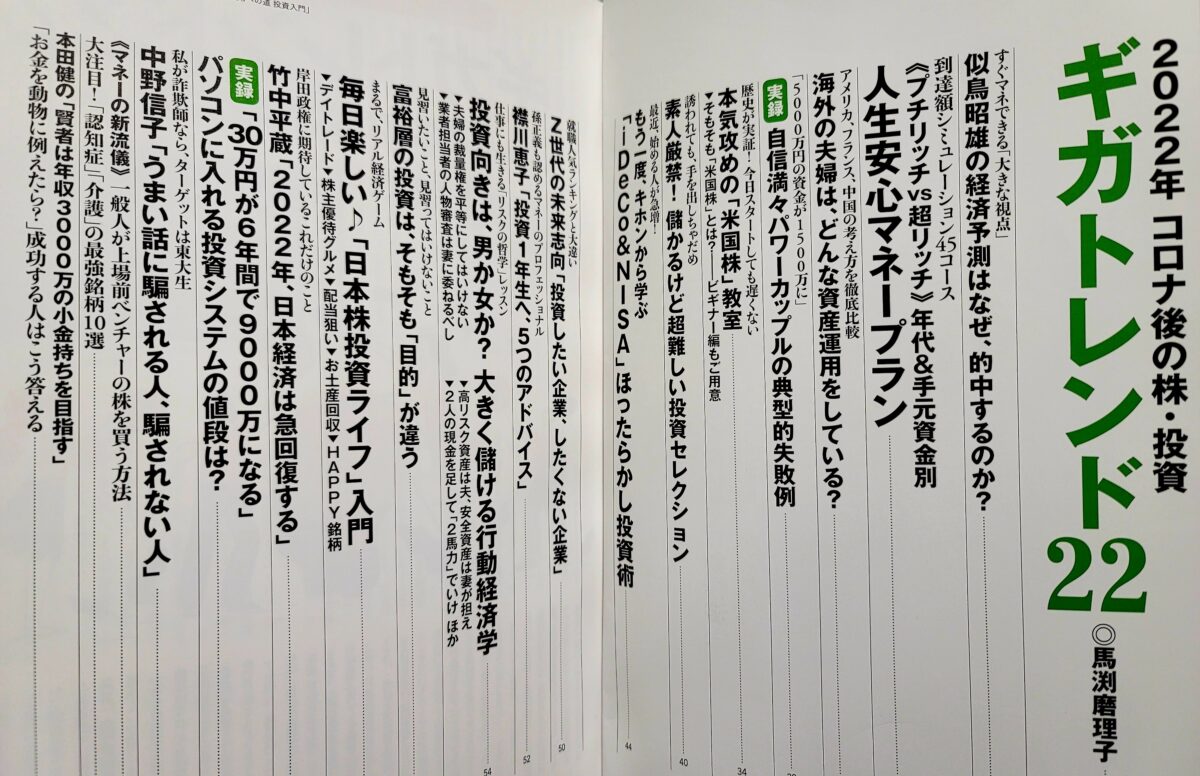 への道 投資入門」
2022年 コロナ後の株・投資
ギガトレンド22
◎馬渕磨理子
すぐマネできる「大きな視点」
似鳥昭雄の経済予測はなぜ、的中するのか?
到達額シミュレーション45コース
《プチリッチvs超リッチ》年代&手元資金別
人生安心マネープラン
アメリカ、フランス、中国の考え方を徹底比較
海外の夫婦は、どんな資産運用をしている?
「5000万円の資金が1500万に」
実録 自信満々パワーカップルの典型的失敗例
歴史が実証!今日スタートしても遅くない
本気攻めの「米国株」教室
▼そもそも「米国株」とは?──ビギナー編もご用意
34
誘われても、手を出しちゃだめ
素人厳禁!儲かるけど超難しい投資セレクション
40
最近、始める人が急増!
もう一度、キホンから学ぶ
「iDeCo&NISA」ほったらかし投資術
44
就職人気ランキングと大違い
Z世代の未来志向「投資したい企業、したくない企業」
50
孫正義も認めるマネーのプロフェッショナル
襟川恵子「投資1年生へ、5つのアドバイス」
52
仕事にも生きる「リスクの哲学」レッスン
投資向きは、男か女か?大きく儲ける行動経済学
54
▼夫婦の裁量権を平等にしてはいけない
▼高リスク資産は夫、安全資産は妻が担え
▼業者担当者の人物審査は妻に委ねるべし
▼2人の現金を足して「2馬力」でいけ ほか
見習いたいこと、見習ってはいけないこと
富裕層の投資は、そもそも「目的」が違う
まるで、リアル経済ゲーム
毎日楽しい♪「日本株投資ライフ」入門
▼デイトレード▼株主優待グルメ▼配当狙い▼お土産回収▼HAPPY銘柄
岸田政権に期待しているこれだけのこと
竹中平蔵「2022年、日本経済は急回復する」
実録 「30万円が6年間で9000万になる」
パソコンに入れる投資システムの値段は?
私が詐欺師なら、ターゲットは東大生
中野信子「うまい話に騙される人、騙されない人」
《マネーの新流儀》一般人が上場前ベンチャーの株を買う方法
大注目!「認知症」「介護」の最強銘柄10選
本田健の「賢者は年収3000万の小金持ちを目指す」
「お金を動物に例えたら?」成功する人はこう答える